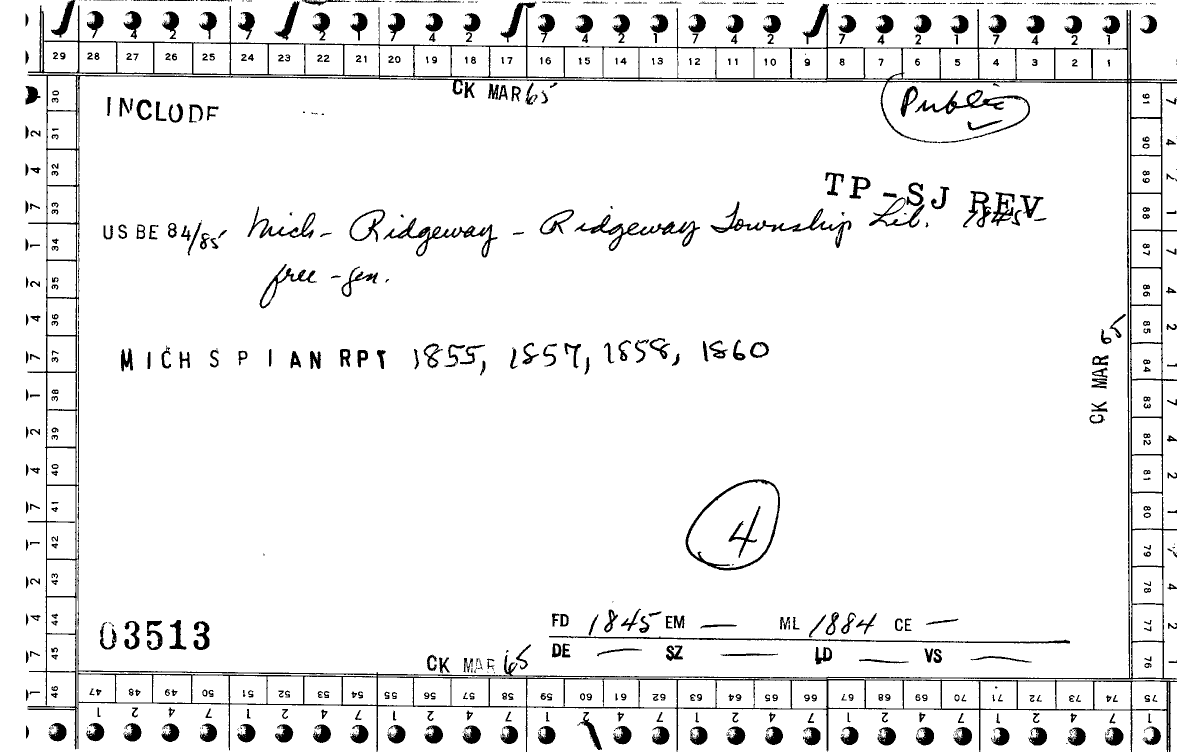 7 4 2 1 7 2 1 7 4 2 1 7 4 2 1 7 4 2 1 7 4 2 1 7 4 2 1
29 28 27 26 25 24 23 22 21 20 19 18 17 16 15 14 13 12 11 10 9 8 7 6 5 4 3 2 1
CK MAR 65
INCLUDE
Public
TP-SJ REV
US BE 84/85 Mich- Ridgeway - Ridgeway Township Lib. 1845-
free - gen.
MICH S P I AN RPT 1855, 1857, 1858, 1860
CK MAR 65
4
FD 1845 EM — ML 1884 CE —
03513
DE — SZ — LD — VS —
CK MAR 65
30 31 32 33 34 35 36 37 38 39 40 41 42 43 44 45 46
91 90 89 88 87 86 85 84 83 82 81 80 79 78 77 76 75
47 48 49 50 51 52 53 54 55 56 57 58 59 60 61 62 63 64 65 66 67 68 69 70 71 72 73 74 75
1 2 4 7 1 2 4 7 1 2 4 7 1 2 4 7 1 2 4 7 1 2 4 7 1 2 4 7